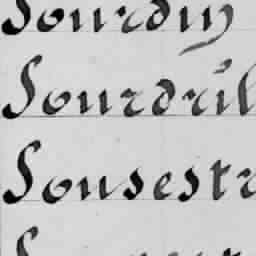 Sourdin
Sourdril
Sousestr